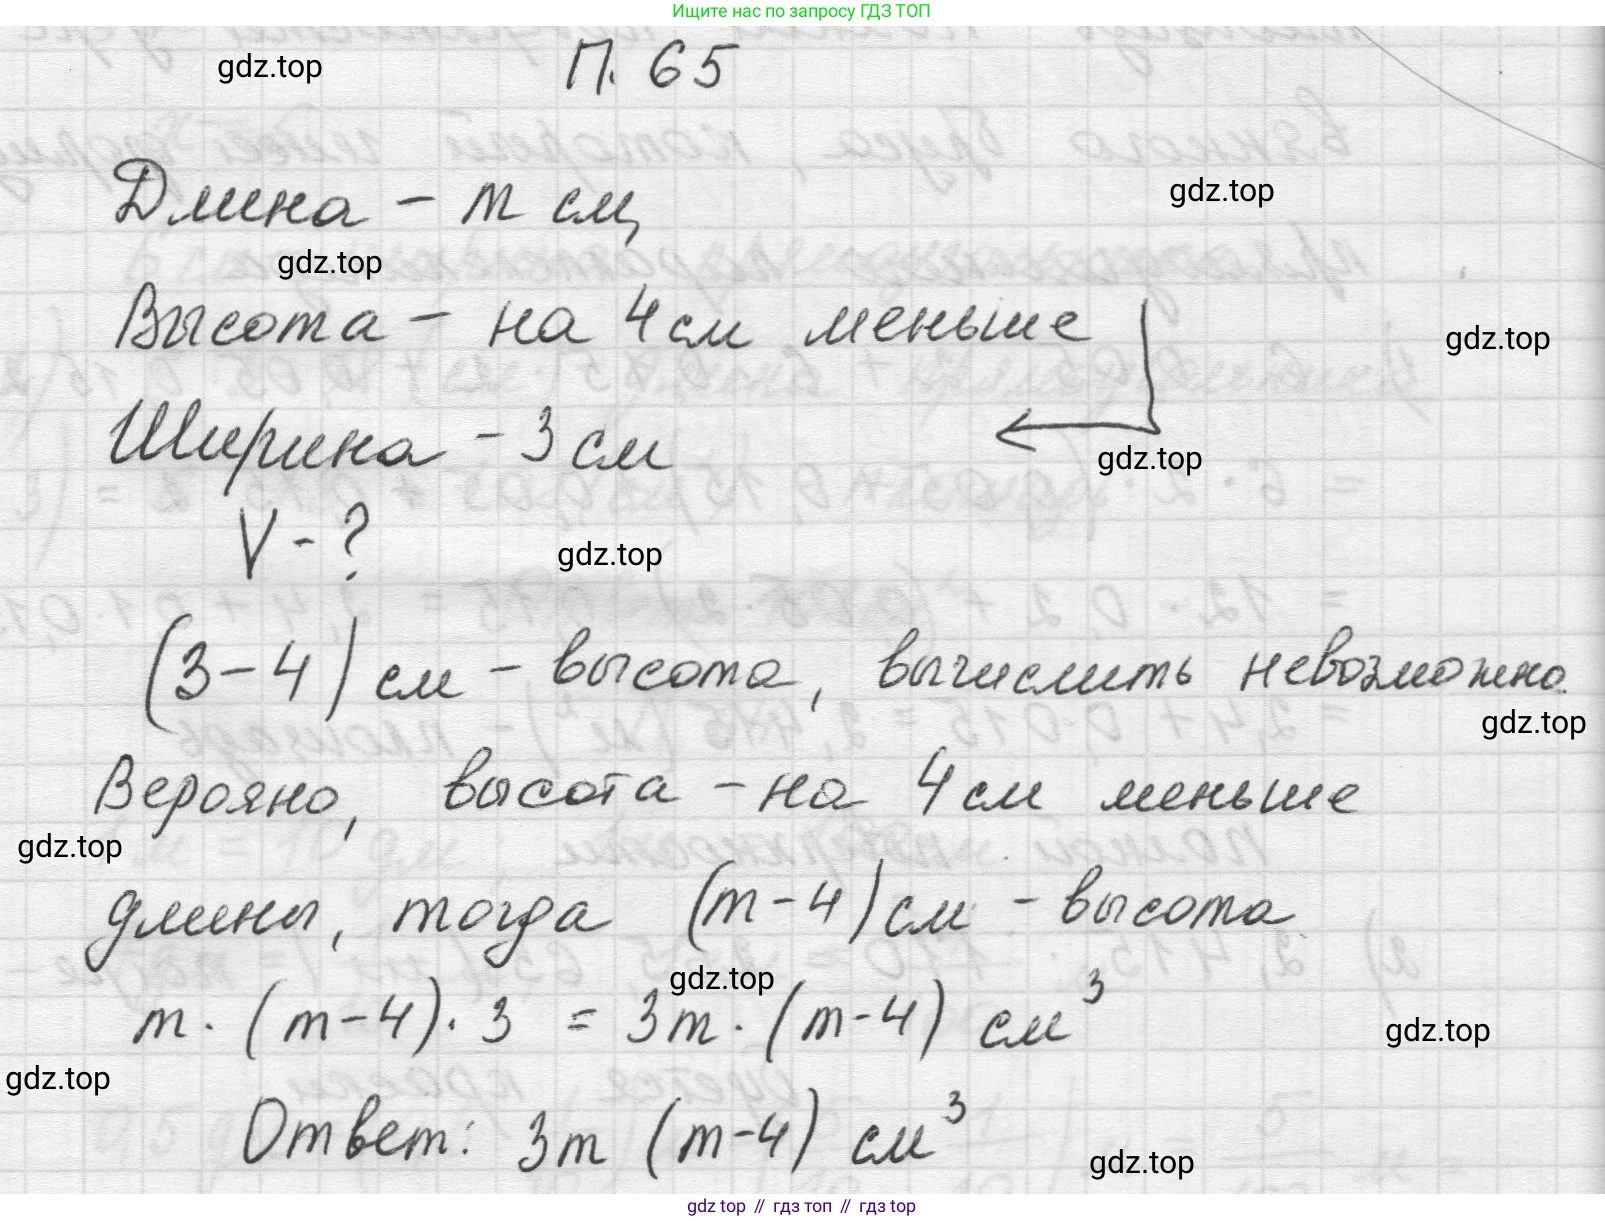 Ищите нас по запросу ГДЗ ТОП
gdz.top
П. 65
Длина – m см,
gdz.top
gdz.top
Высота – на 4 см меньше
gdz.top
Ширина – 3 см
gdz.top
V - ?
gdz.top
(3 – 4) см – высота, вычислить невозможно.
gdz.top
Верояно, высота – на 4 см меньше
gdz.top
длины, тогда (m – 4) см – высота
gdz.top
m · (m – 4) · 3 = 3m · (m – 4) см³
gdz.top
gdz.top
Ответ: 3m (m – 4) см³
gdz.top
gdz.top // гдз топ // гдз top